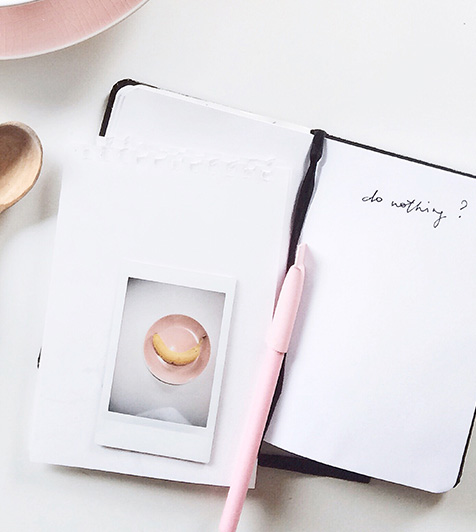 do nothing ?